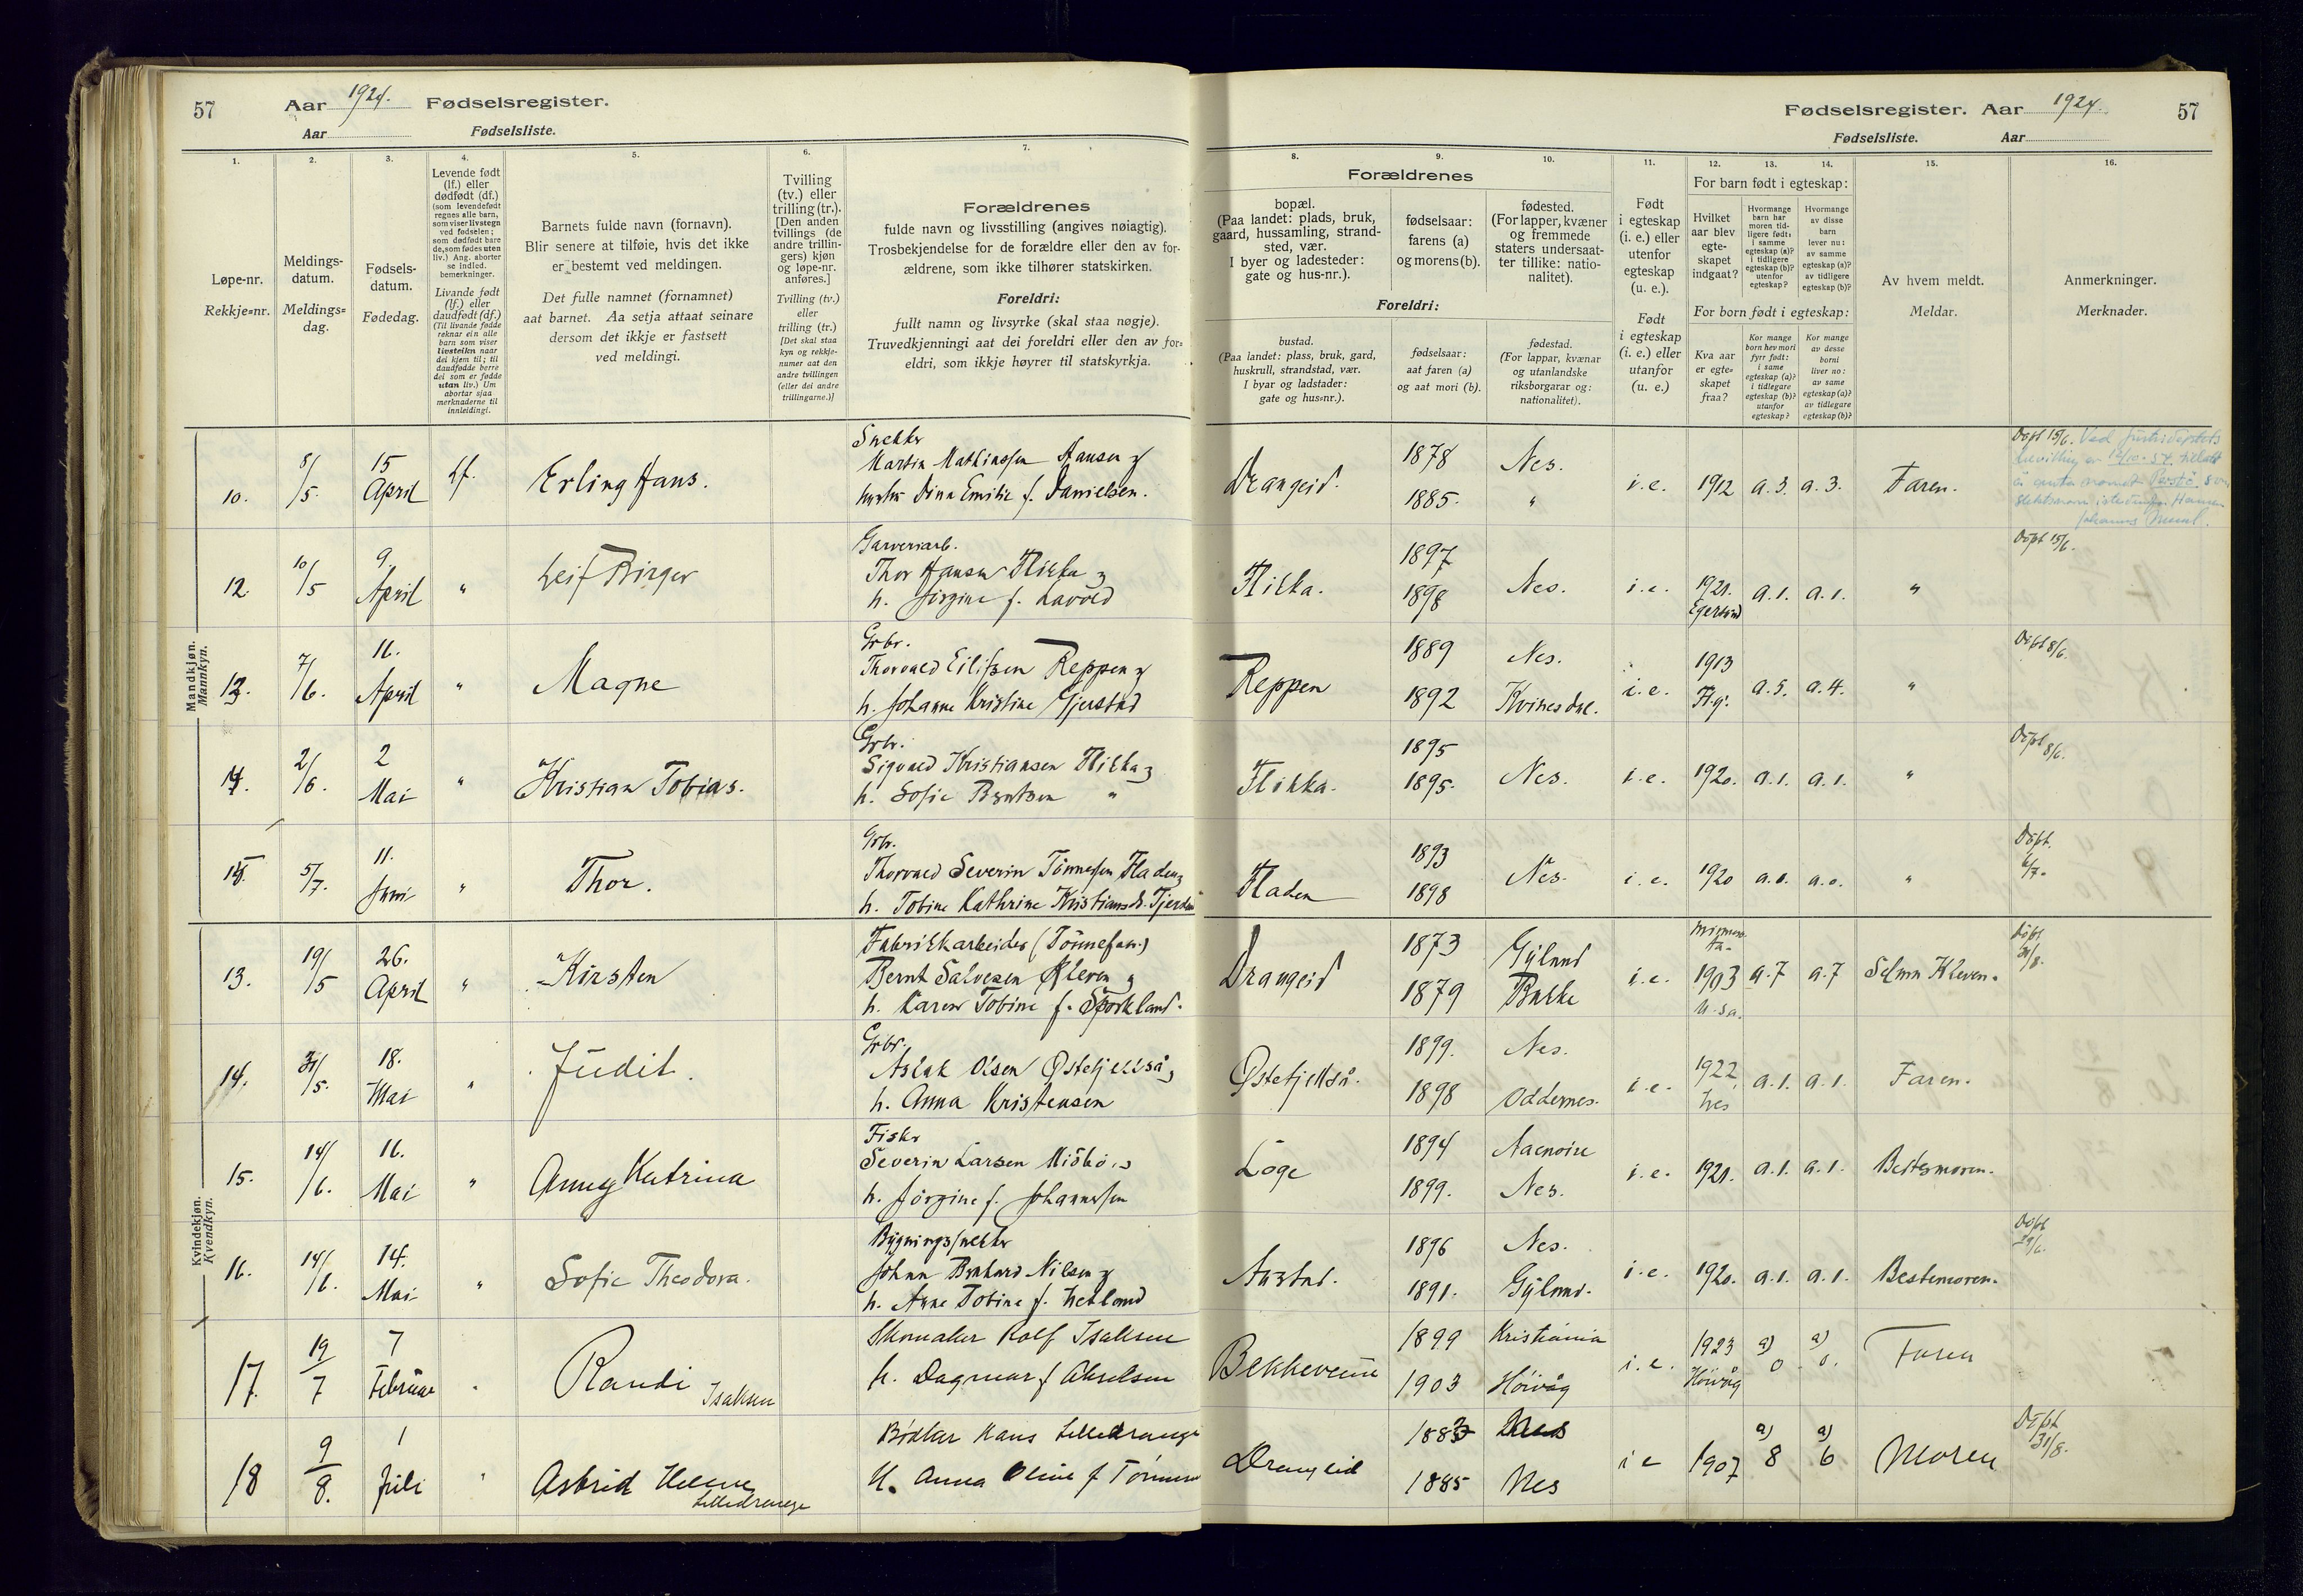 57 Aar 1924. Fødselsregister.
Aar Fødselsliste.
1.
Løpe-nr.
Rekkje-nr.
2.
Meldings-
datum.
Meldings-
dag.
3.
Fødsels-
datum.
Fødedag.
4.
Levende født
(lf.) eller
dødfødt (df.)
(som levendefødt
regnes alle barn,
som viser livstegn
ved fødselen;
som dødfødt bare
de, som fødes uten
liv.) Ang. aborter
se indled.
bemerkninger.
Livande født
(lf.) eller
daudfødt (df.)
(Til livande fødde
reknar ein alle
barn som viser
livsteikn naar
dei kjem til; til
daudfødde berre
dei som er fødde
utan liv.) Um
abortar sjaa
merknaderne til
innleidingi.
5.
Barnets fulde navn (fornavn).
Blir senere at tilføie, hvis det ikke
er bestemt ved meldingen.
Det fulle namnet (fornamnet)
aat barnet. Aa setja attaat seinare
dersom det ikkje er fastsett
ved meldingi.
6.
Tvilling
(tv.) eller
trilling (tr.).
[Den anden
tvillings (de
andre trillin-
gers) kjøn
og løpe-nr.
anføres.]
Tvilling (tv.)
eller
trilling (tr.)
[Det skal staa
kyn og rekkje-
numer aat den
andre tvillingen
(eller dei andre
trillingarne.)]
7.
Forældrenes
fulde navn og livsstilling (angives nøiagtig).
Trosbekjendelse for de forældre eller den av for-
ældrene, som ikke tilhører statskirken.
Foreldri:
fullt namn og livsyrke (skal staa nøgje).
Truvedkjenningi aat dei foreldri eller den av for-
eldri, som ikkje høyrer til statskyrkja.
Mandkjøn.
Mannkyn.
10. 8/5. 15 April Lf. Erling Hans.
Snekker
Martin Mathiassen Hansen og
hustru Dina Emilie f. Danielsen.
12. 10/5 9. April " Leif Birger
Garveriarb.
Thor Hansen Flikka og
h. Jørgine f. Lavold
13. 7/6. 11. April " Magne
Grbr.
Thorvald Eilifsen Reppen og
h. Johanne Kristine Gjerstad
14. 2/6. 2 Mai " Kristian Tobias.
Grbr.
Sigvald Kristiansen Flikka og
h. Sofie Berntsen "
15. 5/7. 11. Juni " Thor.
Grbr.
Thorvald Severin Tønnesen Fladen og
h. Tobine Kathrine Kristiansd.
Kvindekjøn.
Kvendkyn.
13. 19/5 26. April " Kirsten
Fabrikkarbeider (Tønnefabr.)
Bernt Salvesen Kleven og
h. Karen Tobine f. Sporkland.
14. 31/5. 18. Mai " Judit.
Grbr.
Aslak Olsen Østefjellså og
h. Anna Kristensen
15. 14/6. 16. Mai " Anny Katrina
Fisker
Severin Larsen
h. Jørgine f. Johannessen
16. 14/6. 14. Mai " Sofie Theodora.
Bygningssnekker
Johan Bernhard Nilsen og
h. Anne Tobine f. Netland
17. 19/7 7 Februar " Randi Isaksen
Skomaker Rolf Isaksen
h. Dagmar f Akselsen
18 9/8. 1 Juli " Astrid Helene Lilledrange
Bødker Hans Lilledrange
H. Anna Oline f
Fødselsregister. Aar 1924. 57
Fødselsliste. Aar
8.
Forældrenes
bopæl.
(Paa landet: plads, bruk,
gaard, hussamling, strand-
sted, vær.
I byer og ladesteder:
gate og hus-nr.).
Foreldri:
bustad.
(Paa landet: plass, bruk, gard,
huskrull, strandstad, vær.
I byar og ladstader:
gate og hus-nr.).
9.
fødselsaar:
farens (a)
og morens (b).
fødselsaar:
aat faren (a)
og aat mori (b).
10.
fødested.
(For lapper, kvæner
og fremmede
staters undersaat-
ter tillike: natio-
nalitet).
fødestad.
(For lappar, kvænar
og utanlandske
riksborgarar og:
nationalitet).
11.
Født
i egteskap
(i. e.) eller
utenfor
egteskap
(u. e.).
Født
i egteskap
(i. e.) eller
utanfor
(u. e.)
For barn født i egteskap:
12.
Hvilket
aar blev
egte-
skapet
indgaat?
13.
Hvormange
barn har
moren tid-
ligere født:
i samme
egteskap (a)?
i tidligere
egteskap (b)?
utenfor
egteskap?
14.
Hvormange
av disse
barn
lever nu:
av samme
egteskap (a)?
av tidligere
egteskap (b)?
For born født i egteskap:
Kva aar
er egte-
skapet
fraa?
Kor mange
born hev mori
fyrr født:
i same
egteskap (a)?
i tidlegare
egteskap (b)?
utanfor
egteskap?
Kor mange
av desse
borni
liver no:
av same
egteskap (a)?
av tidlegare
egteskap (b)?
15.
Av hvem meldt.
Meldar.
16.
Anmerkninger.
Merknader.
Drangeid. 1878 1885. Nes. " i.e. 1912 a.3. a.3. Faren.
Døpt 15/6. Ved
Flikka. 1897 1898 Nes. i.e. 1921. Egersund a.1. a.1. " Døpt 15/6.
Reppen 1889 1892 Nes. Kvinesdal. i.e. 1913 a.5. a.4. " Døpt 8/6.
Flikka. 1895 1895. Nes. i.e. 1920. a.1. a.1. " Døpt 8/6.
Fladen 1893 1898 Nes. i.e. 1920 a.0. a.0. " Døpt. 6/7.
Drangeid 1873 1879 Gyland Bakke i.e. 1903 U.S.A. a.7 a.7 Selma Kleven. Døpt 31/8.
Østefjellså. 1899. 1898 Nes. Oddernes. i.e. 1922, Nes a.1. a.1. Faren.
Løge 1894 1899. Nes. i.e. 1921. a.1. a.1. Bestemoren.
Austad. 1896 1891. Nes. Gyland. i.e. 1920. a.1. a.1. Bestemoren. Døpt 29/6.
1899 1903 Kristiania Høivåg i.e. 1923 Høivåg a) 0 a) 0. Faren
Drangeid 1883 1885 Nes Nes i e 1907 a) 8 a) 6 Moren Døpt 31/8.